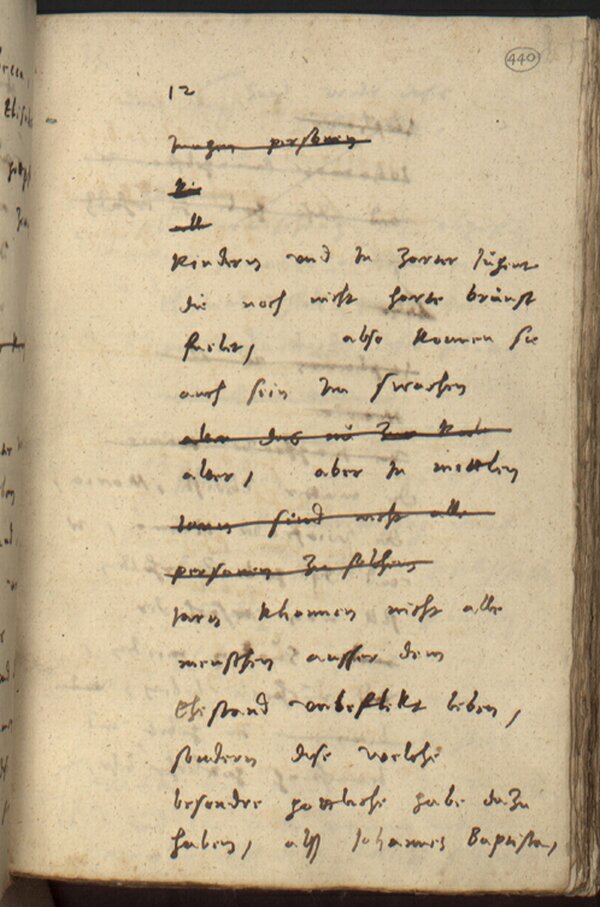 440
12
Jungen personen
die
alle
kindern und in zarter Jugent
die noch nicht harte brünst
fuelet, also konnen sie
auch sein im swachen
alter,  aber in mittlen
jaren sind nicht alle
personen zu solchem
jarn khonnen nicht alle
menschen ausser dem
Ehestand unbeflekt leben,
sondern dise welche
besondre gottliche gabe dazu
haben, alss Johannes Baptista,